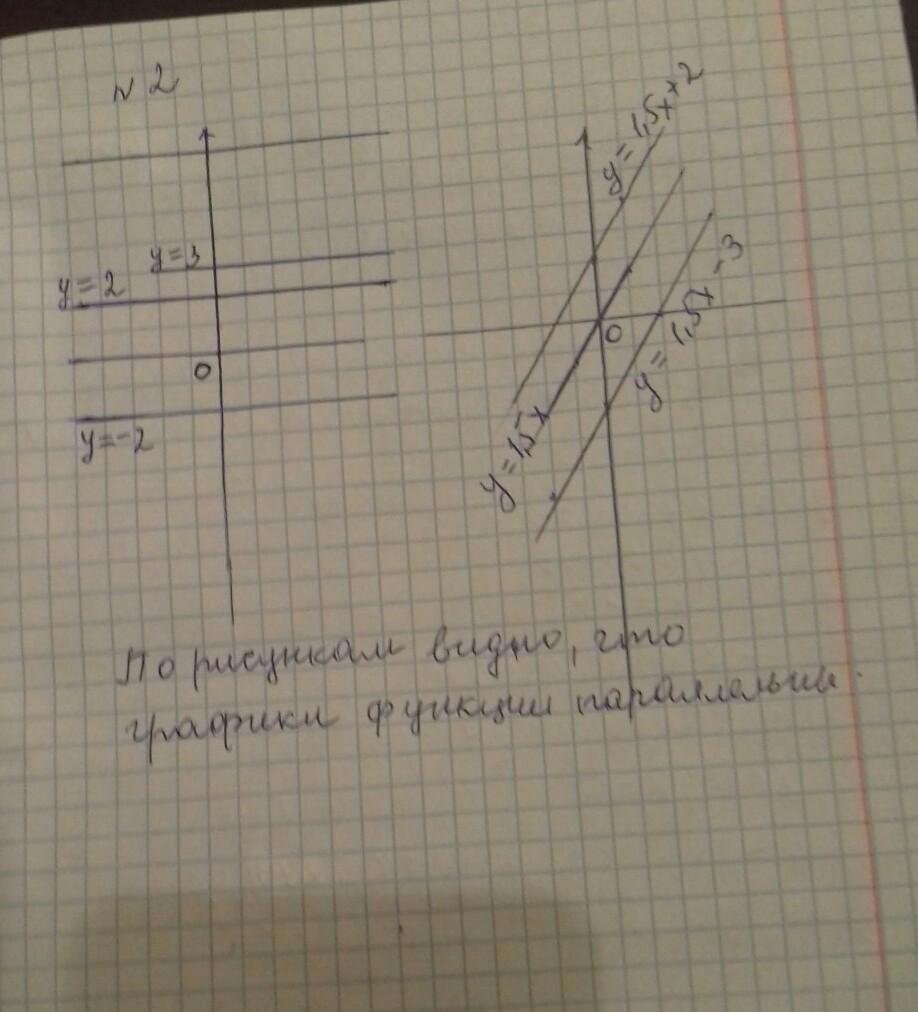 № 2
y = 1,5x+2
y=3
y = 2
y = 1,5x - 3
0
0
y=-2
y = 1,5x
По рисункам видно, что
графики функции параллельны.